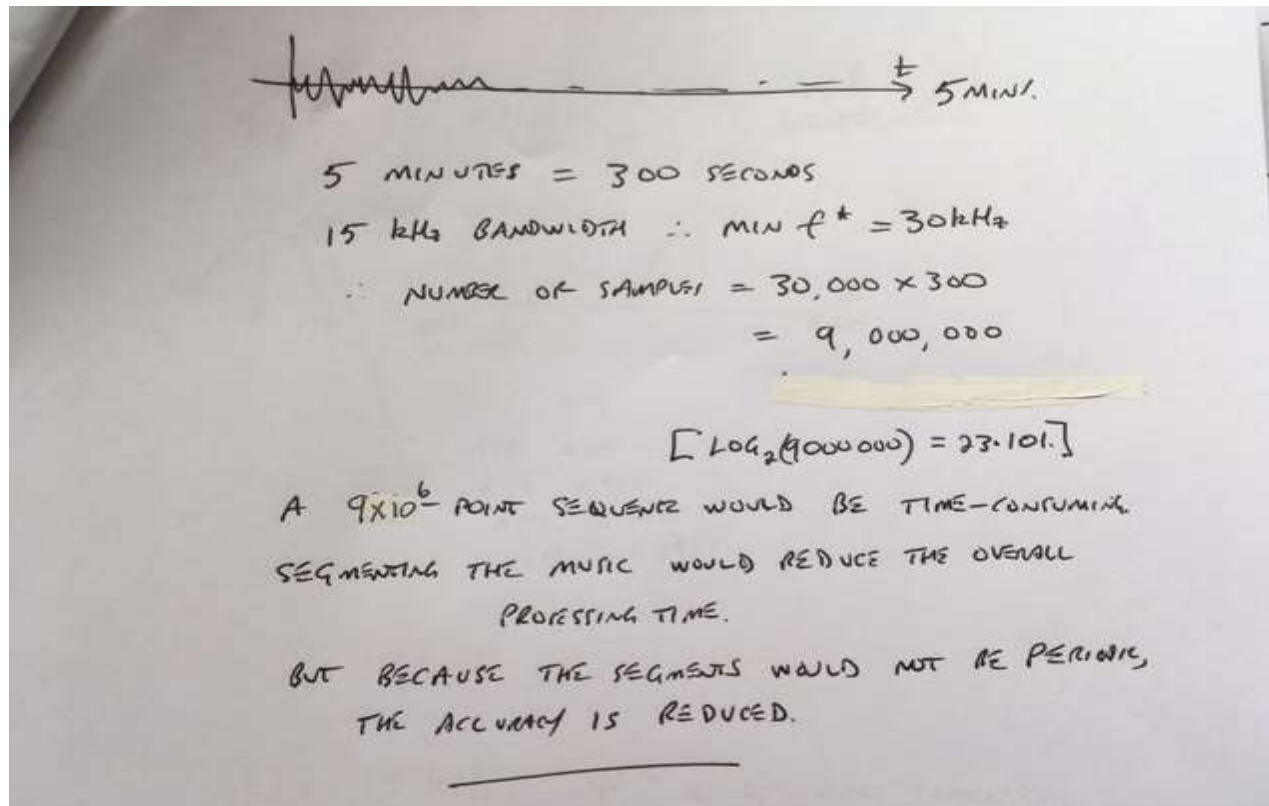 t 5 MINS.
5 MINUTES = 300 SECONDS
15 kHz BANDWIDTH ∴ MIN f* = 30kHz
∴ NUMBER OF SAMPLES = 30,000 × 300
= 9,000,000
[LOG₂(9000000) = 23.101.]
A 9×10⁶ POINT SEQUENCE WOULD BE TIME-CONSUMING.
SEGMENTING THE MUSIC WOULD REDUCE THE OVERALL
PROCESSING TIME.
BUT BECAUSE THE SEGMENTS WOULD NOT BE PERIODIC,
THE ACCURACY IS REDUCED.